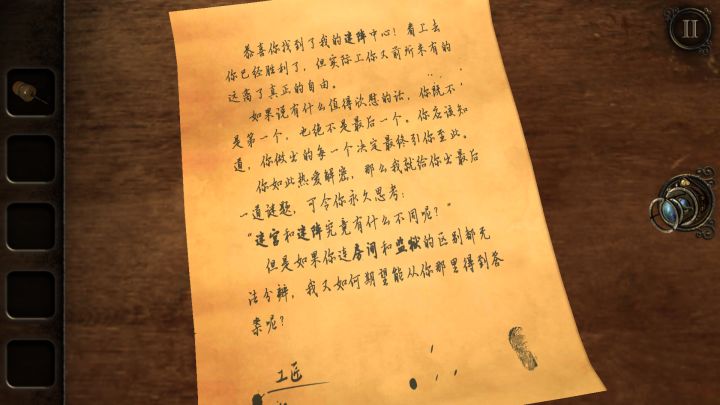 恭喜你找到了我的建阵中心！看上去
你已经胜利了，但实际上你又前所未有的
远离了真正的自由。
如果说有什么值得欣慰的话，你既不
是第一个，也绝不是最后一个。你应该知
道，你做出的每一个决定最终引你至此。
你如此热爱解密，那么我就给你出最后
一道谜题，可令你永久思考：
“迷宫和建阵究竟有什么不同呢？”
但是如果你连房间和监狱的区别都无
法分辨，我又如何期望能从你那里得到答
案呢？
工匠